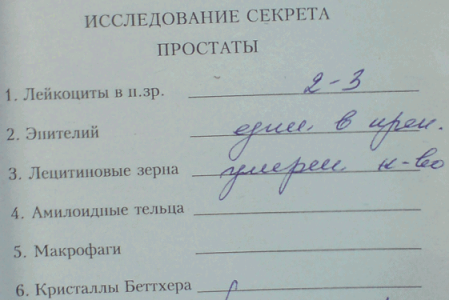 ИССЛЕДОВАНИЕ СЕКРЕТА
ПРОСТАТЫ
1. Лейкоциты в п.зр. 2-3
2. Эпителий един. в преп.
3. Лецитиновые зерна умерен. к-во
4. Амилоидные тельца
5. Макрофаги
6. Кристаллы Беттхера